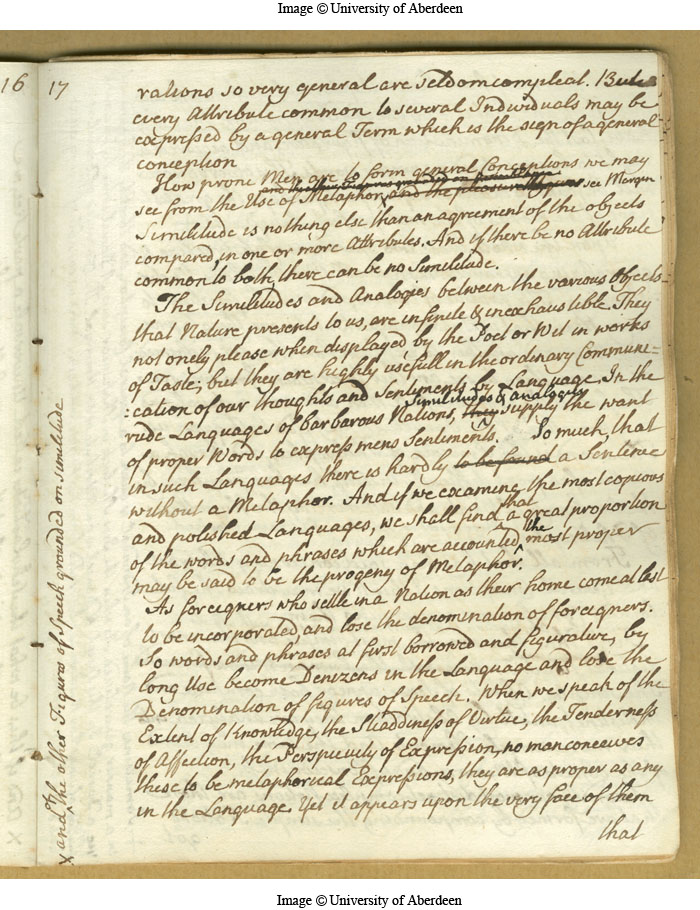 Image © University of Aberdeen
16 17
rations so very general are seldom compleat. But
every Attribute common to several Individuals may be
expressed by a general Term which is the sign of a general
conception
How prone Men are to form general Conceptions we may
see from the Use of Metaphor, and the see Margin
Similitude is nothing else than an agreement of the objects
compared, in one or more Attributes. And if there be no Attribute
common to both, there can be no Similitude.
The Similitudes and Analogies between the various Objects
that Nature presents to us, are infinite & inexhaustible. They
not onely please when displayed by the Poet or Wit in works
of Taste; but they are highly usefull in the ordinary Communi=
:cation of our thoughts and Sentiments by Language. In the
similitudes & analogies
rude Languages of barbarous Nations, they supply the want
of proper Words to express mens Sentiments. So much, that
in such Languages there is hardly to be found a Sentence
without a Metaphor. And if we examine the most copious
and polished Languages, we shall find that a great proportion
of the words and phrases which are accounted the most proper
may be said to be the progeny of Metaphor.
As foreigners who settle in a Nation as their home come at last
to be incorporated, and lose the denomination of foreigners.
So words and phrases at first borrowed and figurative, by
long Use become Denizens in the Language and lose the
Denomination of figures of Speech. When we speak of the
Extent of Knowledge, the Steaddiness of Virtue, the Tenderness
of Affection, the Perspicuity of Expression, no man conceives
these to be metaphorical Expressions, they are as proper as any
in the Language. Yet it appears upon the very face of them
that
x and the other Figures of Speech grounded on similitude
Image © University of Aberdeen